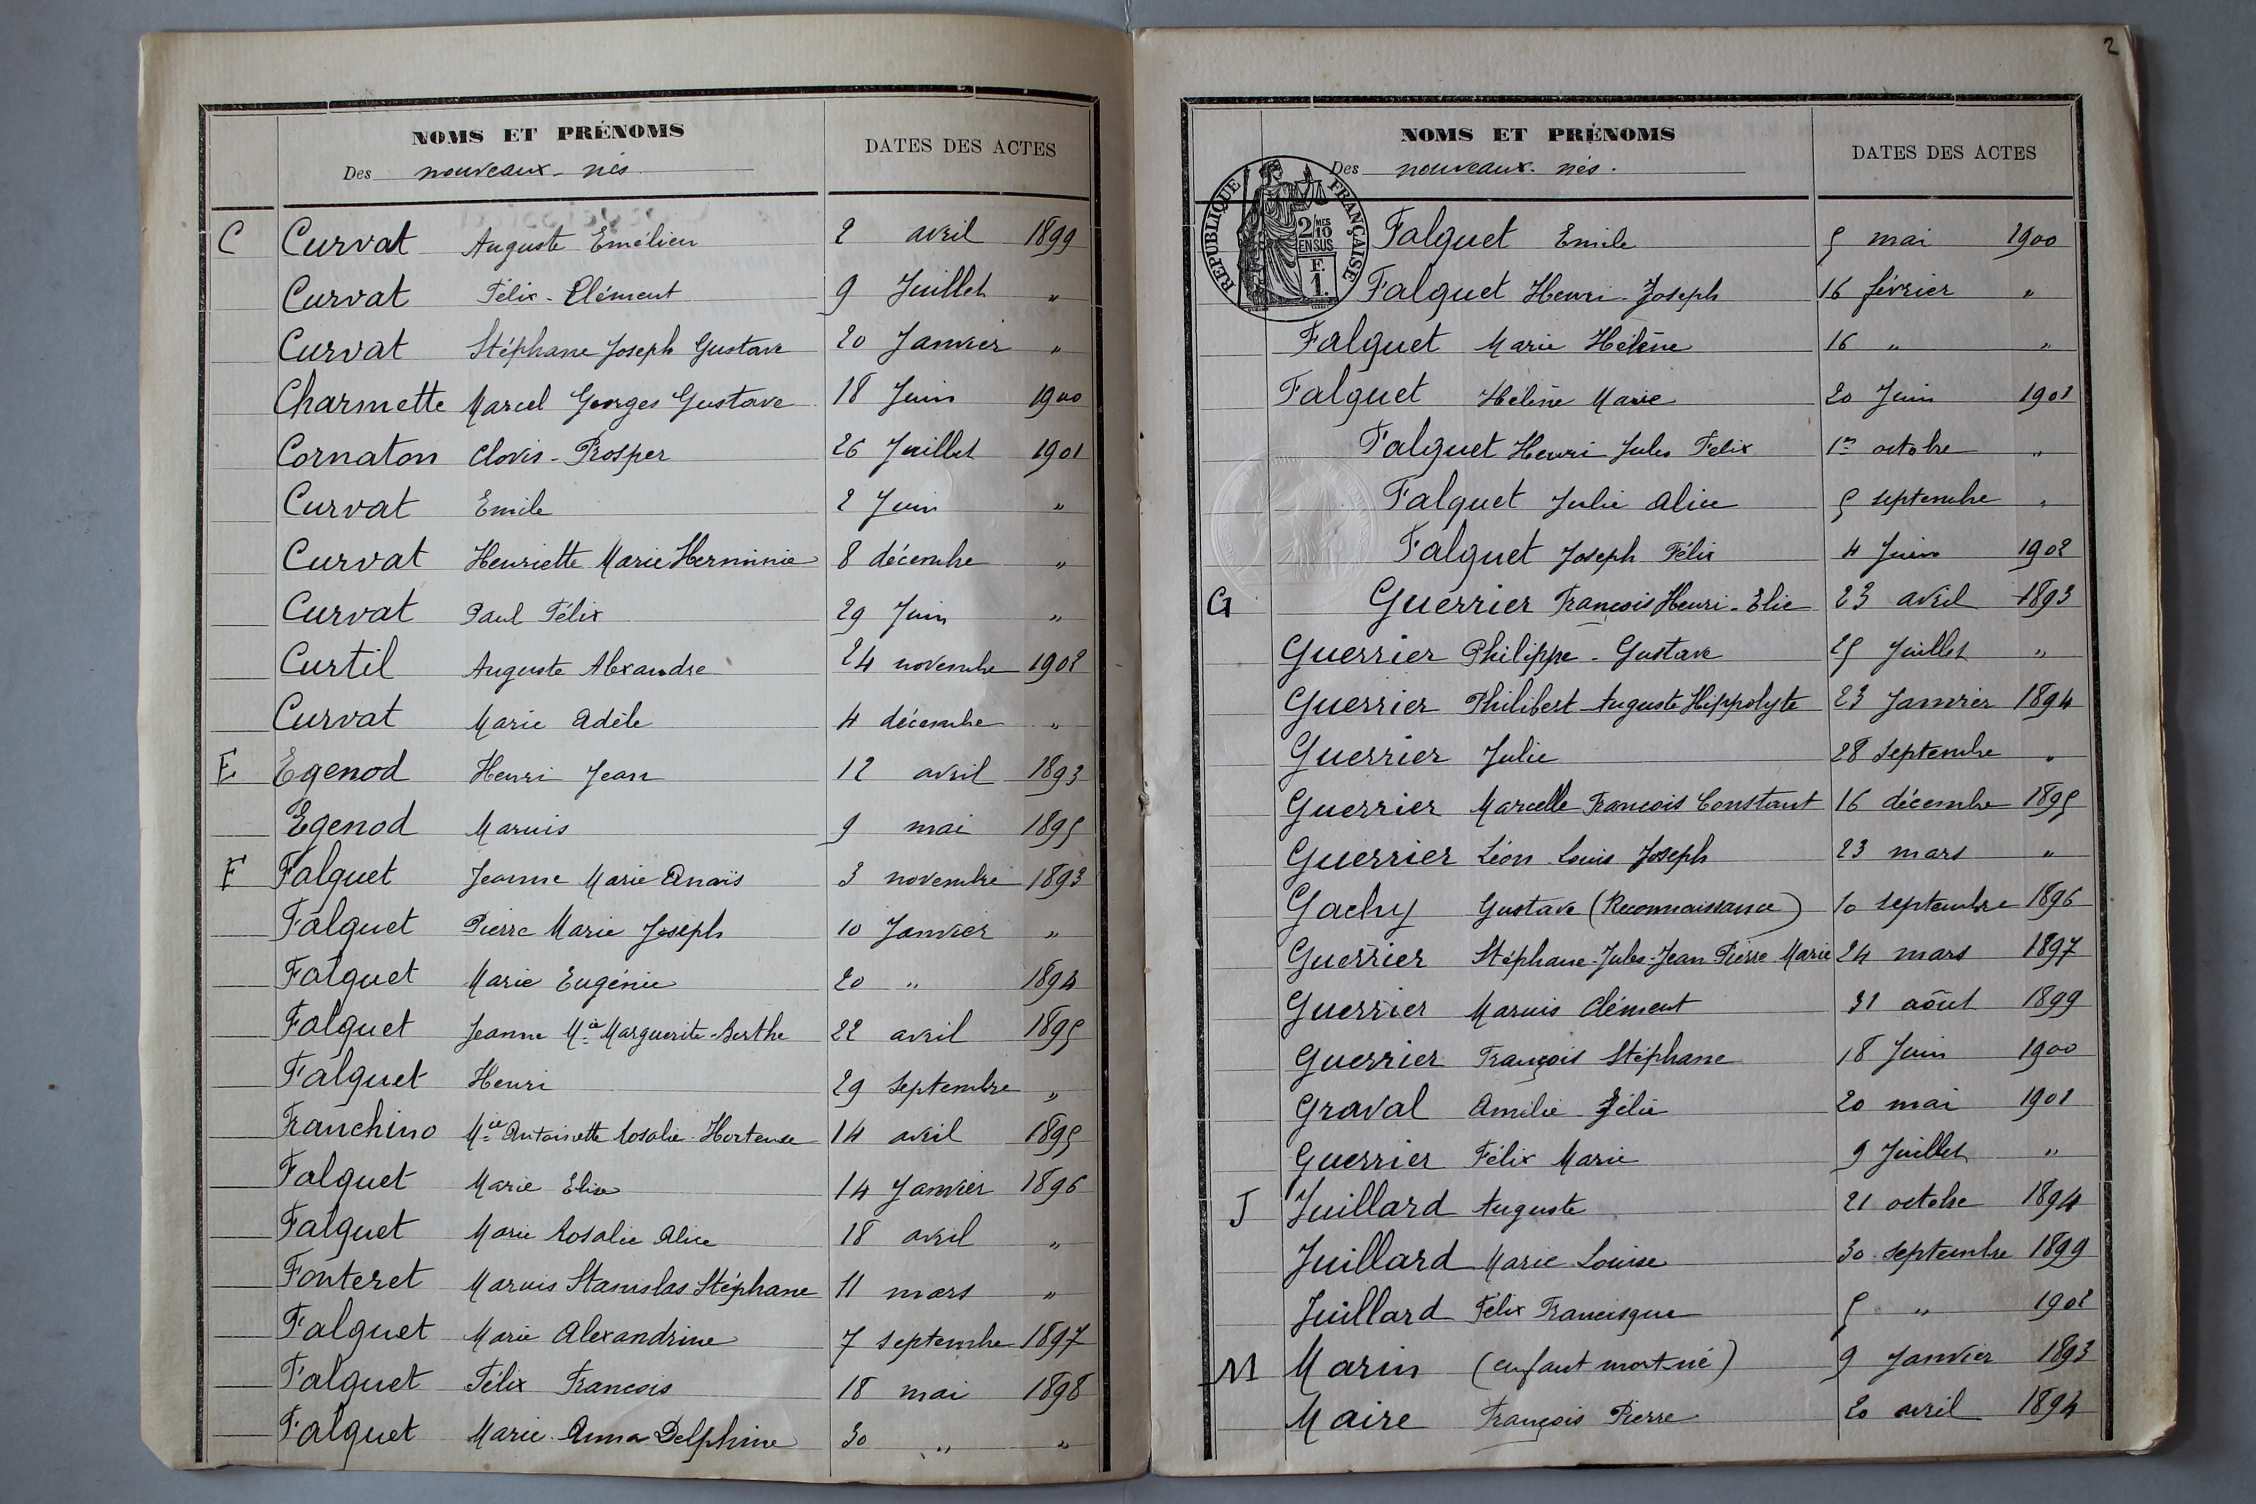 NOMS ET PRÉNOMS
DATES DES ACTES
Des nouveaux-nés
C Curvat Auguste Emélien 2 avril 1899
Curvat Félix-Clément 9 Juillet "
Curvat Stéphane Joseph Gustave 20 Janvier "
Charmette Marcel Georges Gustave 18 Juin 1900
Cornaton Clovis-Prosper 26 Juillet 1901
Curvat Emile 2 Juin "
Curvat Henriette Marie Herminie 8 décembre "
Curvat Paul Félix 29 Juin "
Curtil Auguste Alexandre 24 novembre 1902
Curvat Marie Adèle 4 décembre "
E Egenod Henri Jean 12 avril 1893
Egenod Marius 9 mai 1895
F Falquet Jeanne Marie Anaïs 3 novembre 1893
Falquet Pierre Marie Joseph 10 Janvier "
Falquet Marie Eugénie 20 " 1894
Falquet Jeanne Mie Marguerite-Berthe 22 avril 1895
Falquet Henri 29 septembre "
Franchino Mie Antoinette Rosalie-Hortense 14 avril 1895
Falquet Marie Elise 14 Janvier 1896
Falquet Marie Rosalie Alice 18 avril "
Fonteret Marius Stanislas Stéphane 11 mars "
Falquet Marie Alexandrine 7 septembre 1897
Falquet Félix François 18 mai 1898
Falquet Marie-Anna Delphine 30 " "
2
NOMS ET PRÉNOMS
DATES DES ACTES
Des nouveaux-nés.
RÉPUBLIQUE FRANÇAISE
2/10 MES
EN SUS
F.
1.
Falquet Emile 5 mai 1900
Falquet Henri-Joseph 16 février "
Falquet Marie Hélène 16 " "
Falquet Hélène Marie 20 Juin 1901
Falquet Henri Jules Félix 1er octobre "
Falquet Julie Alice 5 septembre "
Falquet Joseph Félix 4 Juin 1902
G Guerrier François Henri-Elie 23 avril 1893
Guerrier Philippe-Gustave 25 Juillet "
Guerrier Philibert Auguste Hippolyte 23 Janvier 1894
Guerrier Julie 28 septembre "
Guerrier Marcelle François Constant 16 décembre 1895
Guerrier Léon Louis Joseph 23 mars "
Gachy Gustave (Reconnaissance) 10 septembre 1896
Guerrier Stéphane-Jules-Jean Pierre Marie 24 mars 1897
Guerrier Marius Clément 31 août 1899
Guerrier François Stéphane 18 Juin 1900
Graval Amélie Zélie 20 mai 1901
Guerrier Félix Marie 9 Juillet "
J Juillard Auguste 21 octobre 1894
Juillard Marie Louise 30 septembre 1899
Juillard Félix Francisque 5 " 1902
M Marin (enfant mort-né) 9 Janvier 1893
Maire François Pierre 20 avril 1894